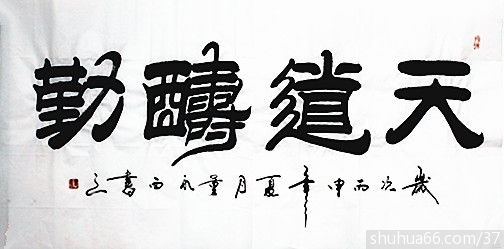 天道醻勤
歲次丙申年夏月董西書之
shuhua66.com/37